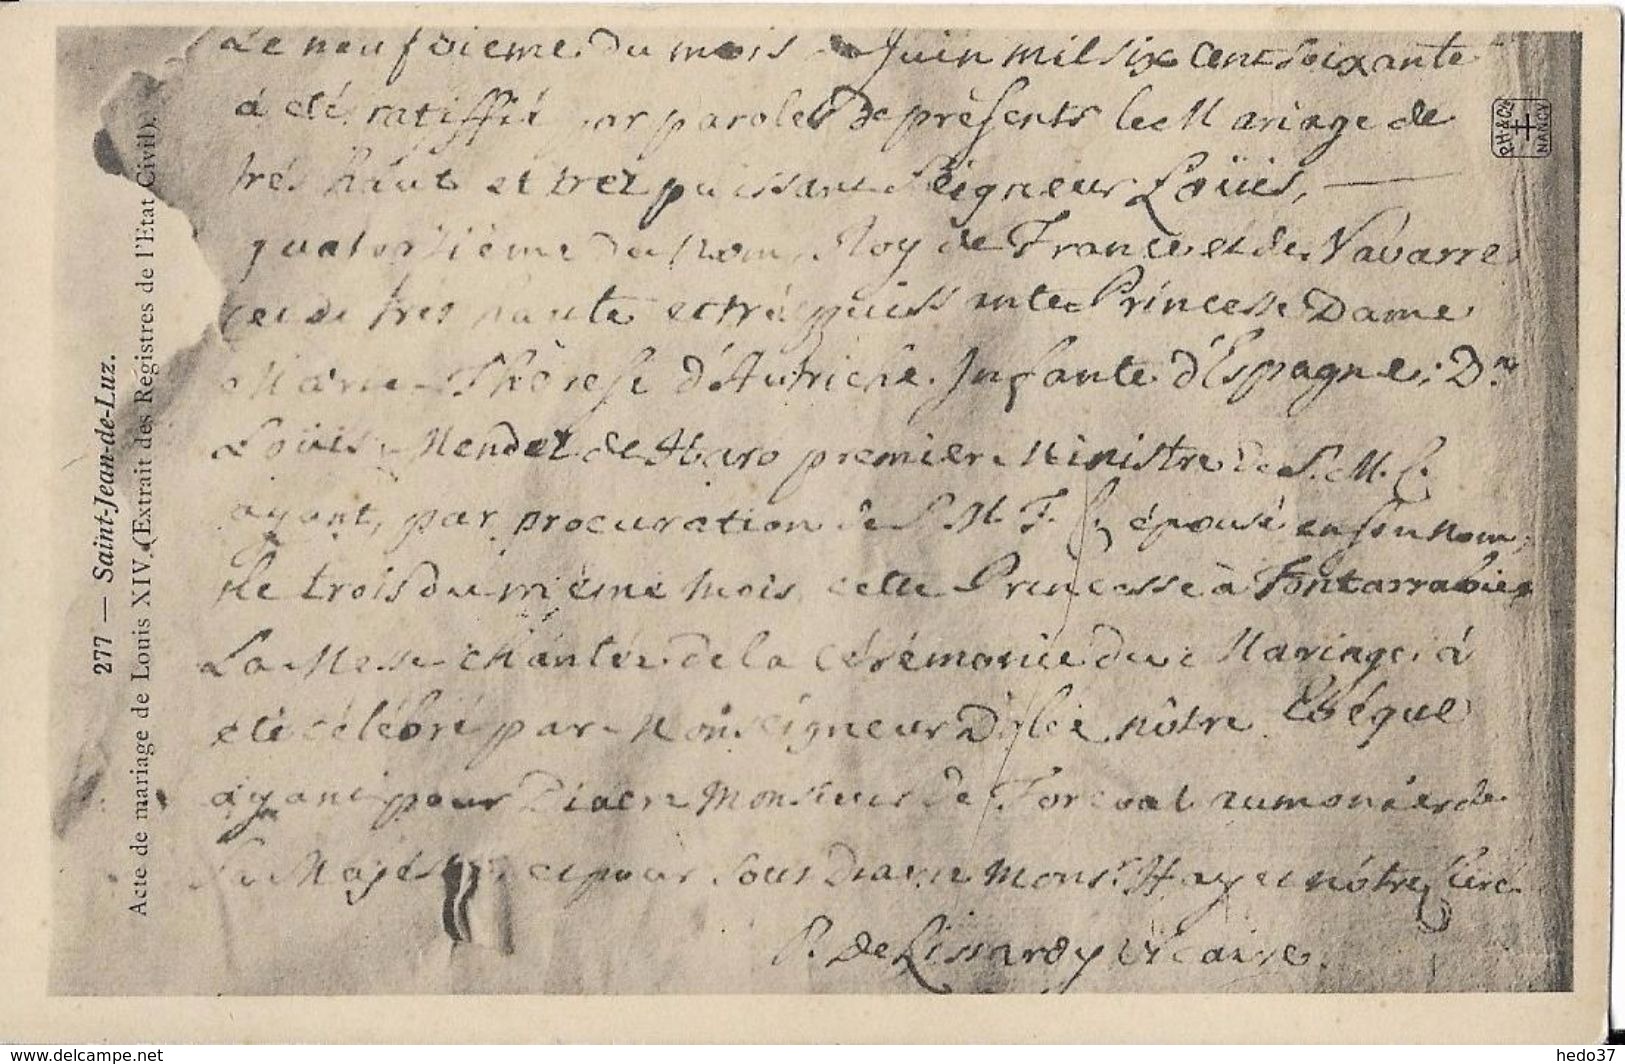 277 — Saint-Jean-de-Luz.
Acte de mariage de Louis XIV. (Extrait des Registres de l'Etat Civil).
PH & Cie
NANCY
Le neufvieme du mois de Juin mil six cent soixante
á eté ratiffié par paroles de présents le Mariage de
trés haut et trés puissant Seigneur Loüis,
quatorzième du Nom, Roy de France et de Navarre
et de trés haute et trés puissante Princesse Dame
Marie Thèrese d'Autriche Infante d'Espagne; Dn
Loüis Mendez de Haro premier Ministre de S. M. C.
ayant, par procuration de S. M. T. C, épousé en son nom,
le trois du même mois cette Princesse à Fontarrabie
La Messe chántée de la Cérémonie du Mariage á
eté célébré par Monseigneur D'olce nôtre Evêque
ayant pour Diacre Monsieur de Forcoal aumonier de
Sa Majesté et pour sous Diacre Monsr. Hayet nôtre Curé
P. de Lissardy Vicaire.
www.delcampe.net
hedo37